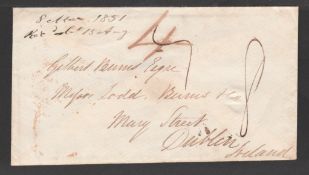 8 Nov. 1851
4
Gilbert Burns Esqre
Messrs Todd, Burns &
Mary Street
Dublin
Ireland